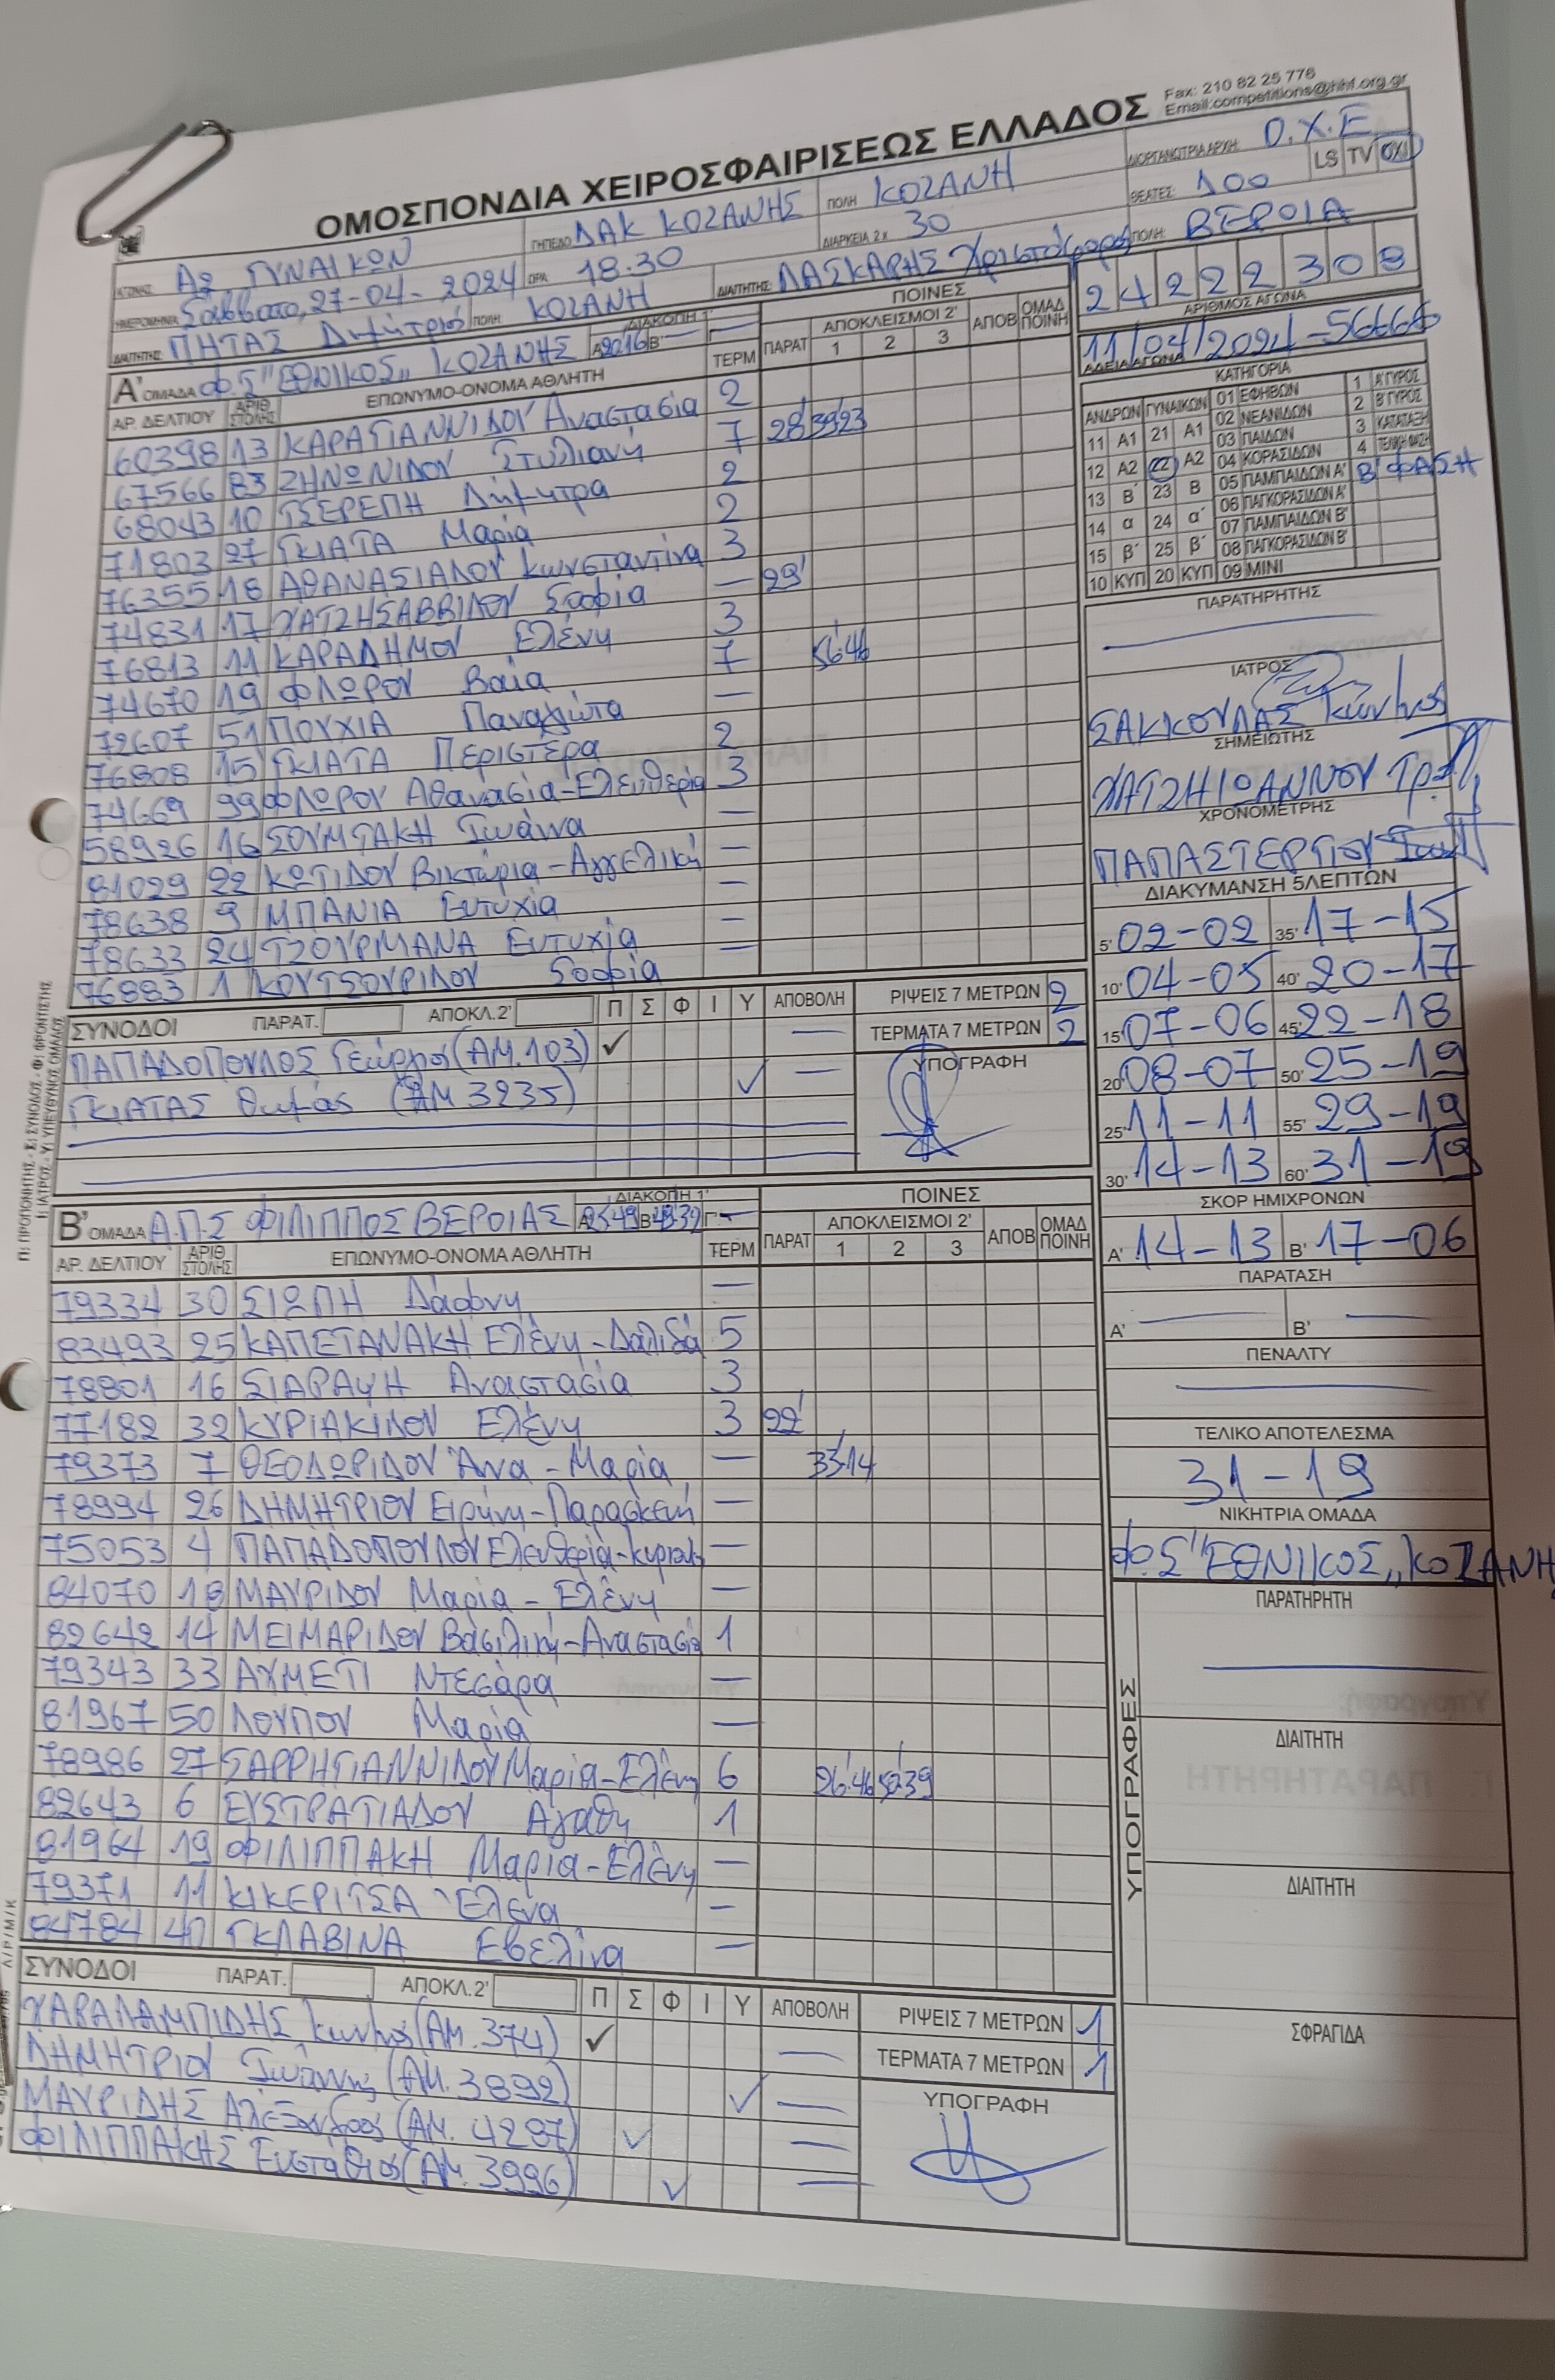 ΟΜΟΣΠΟΝΔΙΑ ΧΕΙΡΟΣΦΑΙΡΙΣΕΩΣ ΕΛΛΑΔΟΣ
Fax: 210 82 25 776
Email:competitions@hhf.org.gr
ΑΓΩΝΑΣ: Α2 ΓΥΝΑΙΚΩΝ ΓΗΠΕΔΟ ΔΑΚ ΚΟΖΑΝΗΣ ΠΟΛΗ ΚΟΖΑΝΗ ΔΙΟΡΓΑΝΩΤΡΙΑ ΑΡΧΗ: Ο.Χ.Ε
ΗΜΕΡΟΜΗΝΙΑ: Σάββατο, 27-04-2024 ΩΡΑ 18:30 ΔΙΑΡΚΕΙΑ 2 x 30 ΘΕΑΤΕΣ: 100 LS TV ΟΧΙ
ΔΙΑΙΤΗΤΗΣ: ΠΗΤΑΣ Δημήτριος ΠΟΛΗ: ΚΟΖΑΝΗ ΔΙΑΙΤΗΤΗΣ: ΛΑΣΚΑΡΗΣ Χριστόφορος ΠΟΛΗ: ΒΕΡΟΙΑ
Α' ΟΜΑΔΑ Φ.Σ "ΕΘΝΙΚΟΣ" ΚΟΖΑΝΗΣ ΔΙΑΚΟΠΗ 1' Α 20:16 Β' —
ΠΟΙΝΕΣ
ΑΡ. ΔΕΛΤΙΟΥ ΑΡΙΘ ΣΤΟΛΗΣ ΕΠΩΝΥΜΟ-ΟΝΟΜΑ ΑΘΛΗΤΗ ΤΕΡΜ ΠΑΡΑΤ ΑΠΟΚΛΕΙΣΜΟΙ 2' 1 2 3 ΑΠΟΒ ΟΜΑΔ ΠΟΙΝΗ
60398 13 ΚΑΡΑΓΙΑΝΝΙΔΟΥ Αναστασία 2
67566 83 ΖΗΝΩΝΙΔΟΥ Στυλιανή 7 28' 39:23
68043 10 ΤΣΕΡΕΠΗ Δήμητρα 2
71803 27 ΓΚΙΑΤΑ Μαρία 2
76355 18 ΑΘΑΝΑΣΙΑΔΟΥ Κωνσταντίνα 3
74831 17 ΧΑΤΖΗΣΑΒΒΙΔΟΥ Σοφία — 29'
76813 11 ΚΑΡΑΔΗΜΟΥ Ελένη 3
74670 19 ΦΛΩΡΟΥ Βαία 7 56:46
72607 51 ΠΟΥΧΙΑ Παναγιώτα —
76808 15 ΓΚΙΑΤΑ Περιστέρα 2
74669 99 ΦΛΩΡΟΥ Αθανασία-Ελευθερία 3
58926 16 ΣΟΥΜΤΑΚΗ Ιωάννα —
81029 22 ΚΩΤΙΔΟΥ Βικτώρια-Αγγελική —
78638 9 ΜΠΑΝΙΑ Ευτυχία —
78633 24 ΤΖΟΥΡΜΑΝΑ Ευτυχία —
76883 1 ΚΟΥΤΣΟΥΡΙΔΟΥ Σοφία —
ΣΥΝΟΔΟΙ ΠΑΡΑΤ. ΑΠΟΚΛ.2' Π Σ Φ Ι Υ ΑΠΟΒΟΛΗ ΡΙΨΕΙΣ 7 ΜΕΤΡΩΝ 2
ΤΕΡΜΑΤΑ 7 ΜΕΤΡΩΝ 2
ΠΑΠΑΔΟΠΟΥΛΟΣ Γεώργιος (ΑΜ.103) ✓ —
ΓΚΙΑΤΑΣ Θωμάς (ΑΜ 3235) ✓ —
ΥΠΟΓΡΑΦΗ
Π: ΠΡΟΠΟΝΗΤΗΣ - Σ: ΣΥΝΟΔΟΣ - Φ: ΦΡΟΝΤΙΣΤΗΣ
Ι: ΙΑΤΡΟΣ - Υ: ΥΠΕΥΘΥΝΟΣ ΟΜΑΔΟΣ
Β' ΟΜΑΔΑ Α.Π.Σ ΦΙΛΙΠΠΟΣ ΒΕΡΟΙΑΣ ΔΙΑΚΟΠΗ 1' Γ' —
ΠΟΙΝΕΣ
ΑΡ. ΔΕΛΤΙΟΥ ΑΡΙΘ ΣΤΟΛΗΣ ΕΠΩΝΥΜΟ-ΟΝΟΜΑ ΑΘΛΗΤΗ ΤΕΡΜ ΠΑΡΑΤ ΑΠΟΚΛΕΙΣΜΟΙ 2' 1 2 3 ΑΠΟΒ ΟΜΑΔ ΠΟΙΝΗ
79334 30 ΣΙΩΠΗ Δάφνη —
83493 25 ΚΑΠΕΤΑΝΑΚΗ Ελένη-Δαλιδά 5
78801 16 ΣΙΑΡΑΨΗ Αναστασία 3
77182 32 ΚΥΡΙΑΚΙΔΟΥ Ελένη 3 22'
79373 7 ΘΕΟΔΩΡΙΔΟΥ Άνα-Μαρία — 33:14
78994 26 ΔΗΜΗΤΡΙΟΥ Ειρήνη-Παρασκευή —
75053 4 ΠΑΠΑΔΟΠΟΥΛΟΥ Ελευθερία-Κυριακή —
84070 18 ΜΑΥΡΙΔΟΥ Μαρία-Ελένη —
82642 14 ΜΕΙΜΑΡΙΔΟΥ Βασιλική-Αναστασία 1
79343 33 ΑΧΜΕΤΙ Ντεσάρα —
81967 50 ΛΟΥΠΟΥ Μαρία —
78986 27 ΣΑΡΡΗΓΙΑΝΝΙΔΟΥ Μαρία-Ελένη 6 26:46 52:39
82643 6 ΕΥΣΤΡΑΤΙΑΔΟΥ Αγάθη 1
81964 19 ΦΙΛΙΠΠΑΚΗ Μαρία-Ελένη —
79371 11 ΚΙΚΕΡΙΤΣΑ Έλενα —
84784 40 ΓΚΛΑΒΙΝΑ Εβελίνα —
ΣΥΝΟΔΟΙ ΠΑΡΑΤ. ΑΠΟΚΛ.2' Π Σ Φ Ι Υ ΑΠΟΒΟΛΗ ΡΙΨΕΙΣ 7 ΜΕΤΡΩΝ 1
ΤΕΡΜΑΤΑ 7 ΜΕΤΡΩΝ 1
ΧΑΡΑΛΑΜΠΙΔΗΣ Κων/νος (ΑΜ.374) ✓ —
ΔΗΜΗΤΡΙΟΥ Ιωάννης (ΑΜ.3892) ✓ —
ΜΑΥΡΙΔΗΣ Αλέξανδρος (ΑΜ. 4297) ✓ —
ΦΙΛΙΠΠΑΚΗΣ Ευστάθιος (ΑΜ. 3996) ✓ —
ΥΠΟΓΡΑΦΗ
24222309
ΑΡΙΘΜΟΣ ΑΓΩΝΑ
11/04/2024-56668
ΑΔΕΙΑ ΑΓΩΝΑ
ΚΑΤΗΓΟΡΙΑ
ΑΝΔΡΩΝ ΓΥΝΑΙΚΩΝ 01 ΕΦΗΒΩΝ 1 Α'ΓΥΡΟΣ
11 Α1 21 Α1 02 ΝΕΑΝΙΔΩΝ 2 Β'ΓΥΡΟΣ
12 Α2 22 Α2 03 ΠΑΙΔΩΝ 3 ΚΑΤΑΤΑΞΗ
13 Β' 23 Β 04 ΚΟΡΑΣΙΔΩΝ 4 ΤΕΛΙΚΗ ΦΑΣΗ
14 α 24 α' 05 ΠΑΜΠΑΙΔΩΝ Α' Β' ΦΑΣΗ
15 β' 25 β' 06 ΠΑΓΚΟΡΑΣΙΔΩΝ Α'
07 ΠΑΜΠΑΙΔΩΝ Β'
08 ΠΑΓΚΟΡΑΣΙΔΩΝ Β'
10 ΚΥΠ 20 ΚΥΠ 09 ΜΙΝΙ
ΠΑΡΑΤΗΡΗΤΗΣ
—
ΙΑΤΡΟΣ
ΣΑΚΚΟΥΛΑΣ Κων/νος
ΣΗΜΕΙΩΤΗΣ
ΧΑΤΖΗΙΩΑΝΝΟΥ
ΧΡΟΝΟΜΕΤΡΗΣ
ΠΑΠΑΣΤΕΡΓΙΟΥ
ΔΙΑΚΥΜΑΝΣΗ 5ΛΕΠΤΩΝ
5' 02-02 35' 17-15
10' 04-05 40' 20-17
15' 07-06 45' 22-18
20' 08-07 50' 25-19
25' 11-11 55' 29-19
30' 14-13 60' 31-19
ΣΚΟΡ ΗΜΙΧΡΟΝΩΝ
Α' 14-13 Β' 17-06
ΠΑΡΑΤΑΣΗ
Α' — Β' —
ΠΕΝΑΛΤΥ
—
ΤΕΛΙΚΟ ΑΠΟΤΕΛΕΣΜΑ
31-19
ΝΙΚΗΤΡΙΑ ΟΜΑΔΑ
Φ.Σ "ΕΘΝΙΚΟΣ" ΚΟΖΑΝΗ
ΥΠΟΓΡΑΦΕΣ
ΠΑΡΑΤΗΡΗΤΗ
—
ΔΙΑΙΤΗΤΗ
ΔΙΑΙΤΗΤΗ
ΣΦΡΑΓΙΔΑ